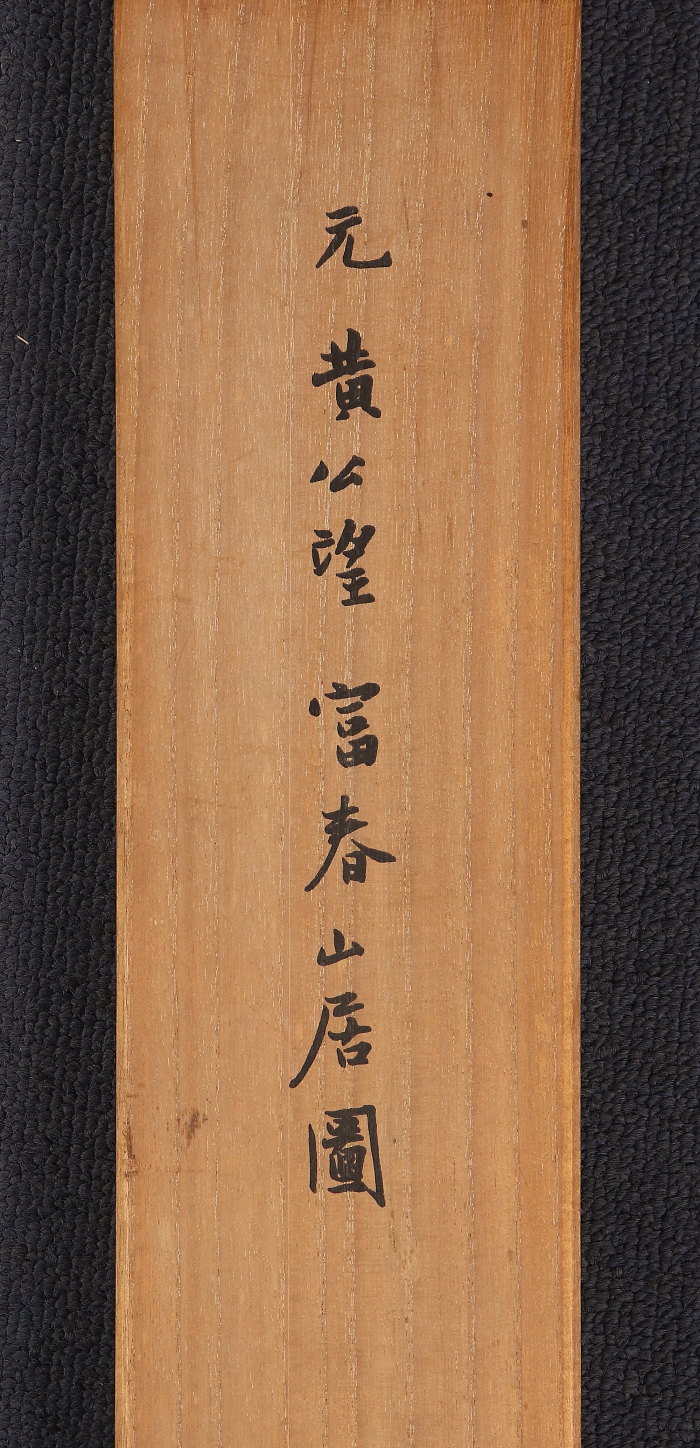 元 黄公望 富春山居圖